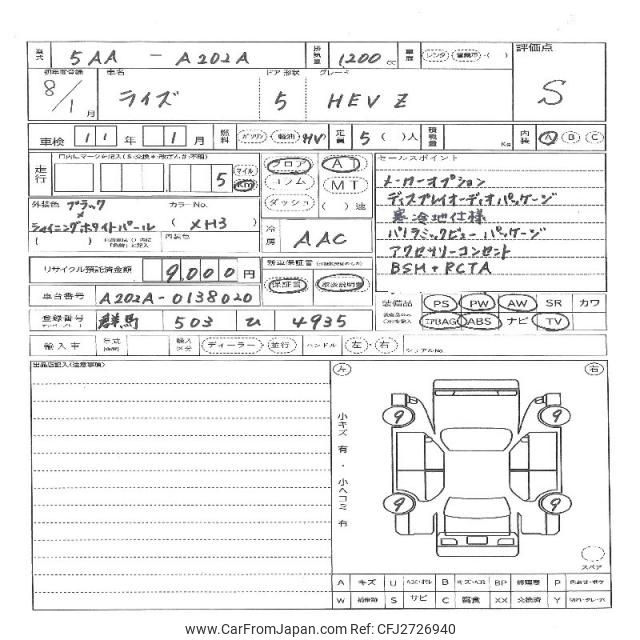 型式 5AA - A202A 排気量 1200 cc 車歴 レンタ・営業車・( ) 評価点 S
初年度登録 8/1月 車名 ライズ ドア 形状 5 グレード HEV Z
車検 11年 1月 燃料 ガソリン・軽油・HV 定員 5( )人 積載量 Kg 内装 A B C
走行 5 マイル Km フロア コラム ダッシュ AT MT ( )速 セールスポイント
メーカーオプション
ディスプレイオーディオパッケージ
寒冷地仕様
パノラミックビューパッケージ
アクセサリーコンセント
BSM+RCTA
外装色 ブラック× シャイニングホワイトパール カラーNo. ( XH3 ) 内装色 冷房 AAC
リサイクル預託済金額 9000円 保証書 取扱説明書
車台番号 A202A-0138020 装備品 PS PW AW SR カワ
登録番号 群馬 503 ひ 4935 エアBAG ABS ナビ TV
輸入車 年式 輸入区分 ディーラー・並行 ハンドル 左・右 シリアルNo.
出品店記入(注意事項)
左 右
小キズ有・小ヘコミ有
9 9
9 9
スペア
A キズ U B BP 修理要 P
W 補修跡 S サビ C 腐食 XX 交換済 Y
© www.CarFromJapan.com - CFJ2726940